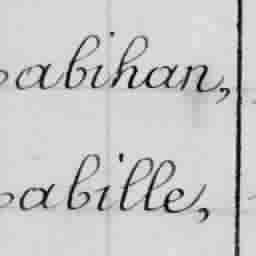 abihan,
abille,